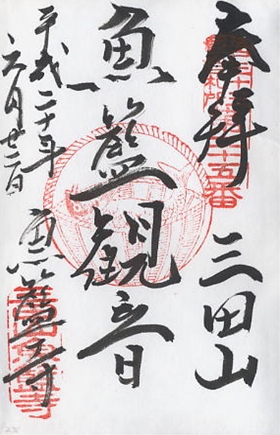 奉拝 三田山
十五番
魚籃観音
平成二十年
六月廿二日
魚籃寺